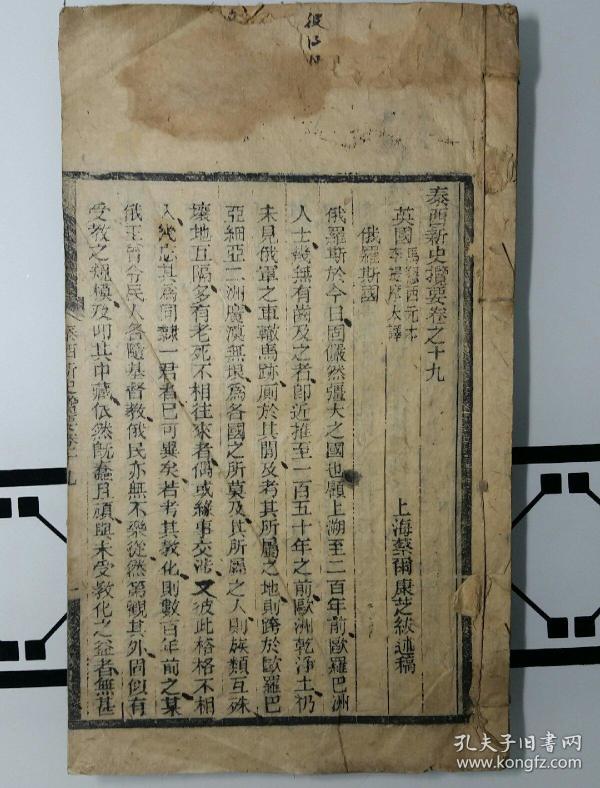 泰西新史攬要卷之十九
英國
馬懇西元本
李提摩太譯
上海蔡爾康芝紱述稿
俄羅斯國
俄羅斯於今日固儼然彊大之國也顧上溯至二百年前歐羅巴洲
人士幾無有齒及之者卽近推至一百五十年之前歐洲乾淨土仍
未見俄軍之車轍馬跡廁於其閒及考其所屬之地則跨於歐羅巴
亞細亞二洲廣漠無垠爲各國之所莫及其所屬之人則族類互殊
壤地互隔多有老死不相往來者偶或緣事交涉又彼此格格不相
入幾忘其爲同隸一君者已可異矣若考其敎化則數百年前之某
俄王曾令民人各隨基督敎俄民亦無不樂從然第觀其外固似有
受敎之規模及叩其中藏依然旣蠢且頑與未受敎化之益者無甚
泰西新史攬要卷十九
一
孔夫子旧书网
www.kongfz.com